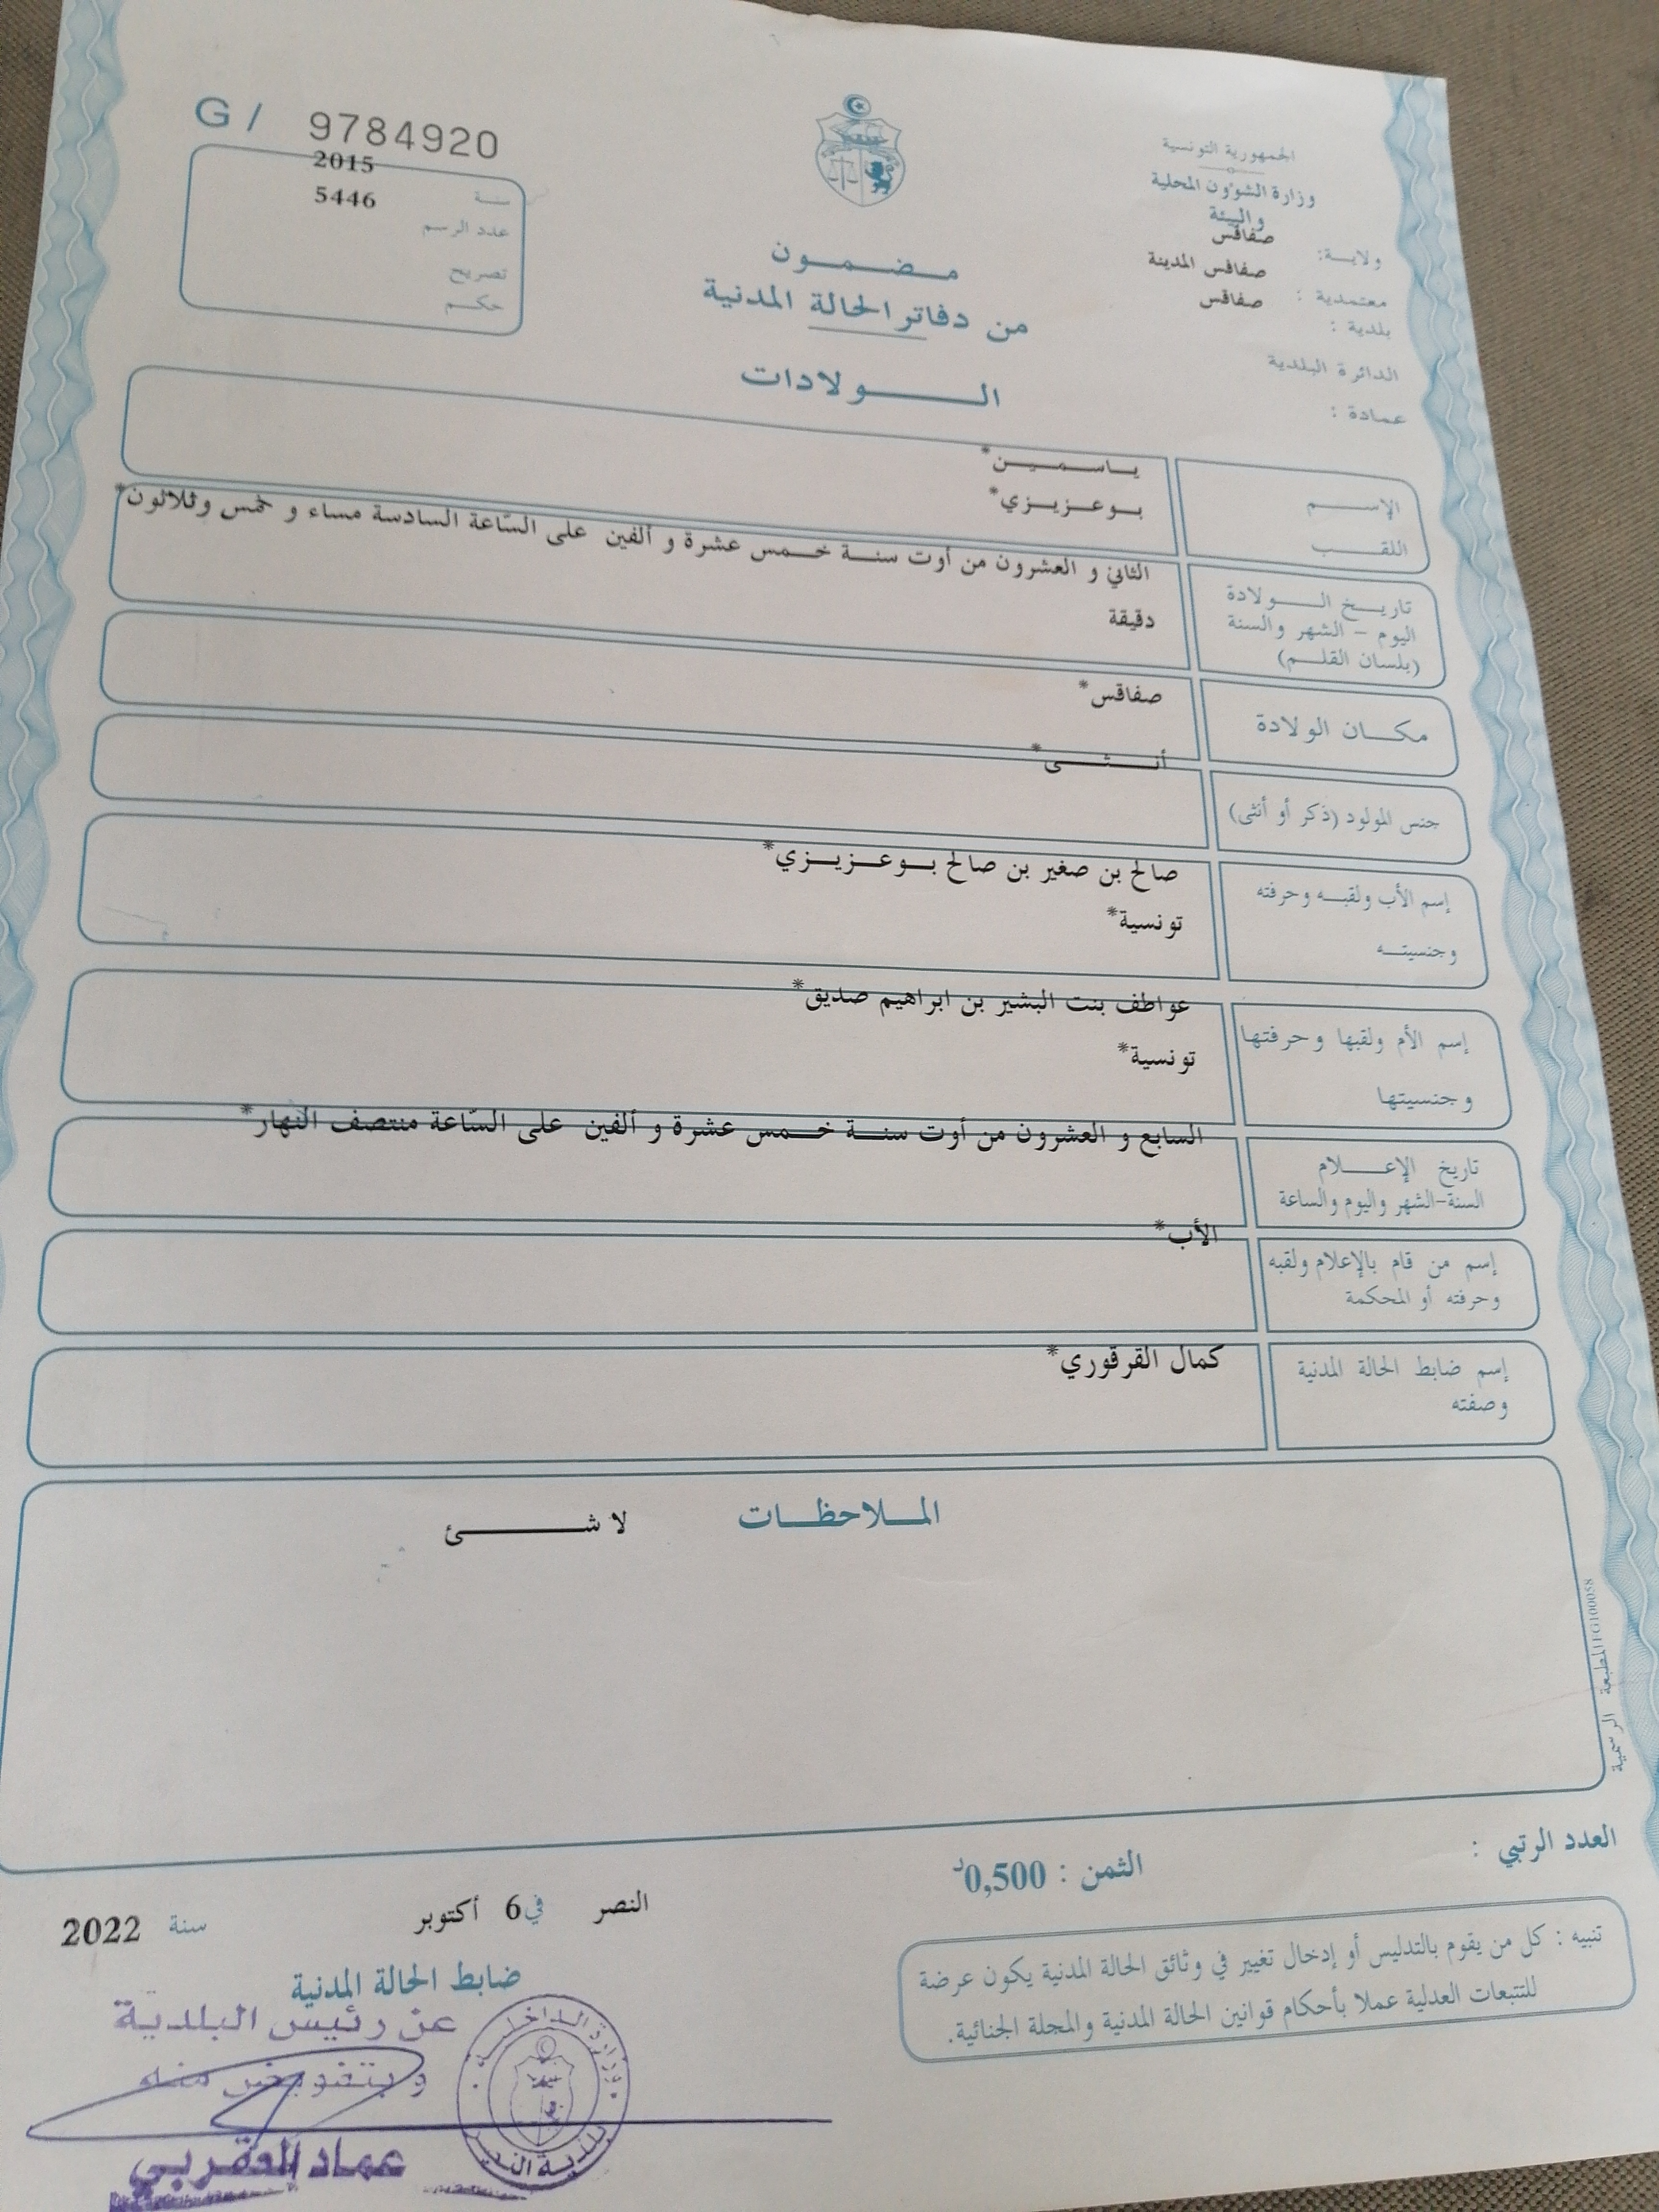 G / 9784920
سنة 2015
عدد الرسم 5446
تصريح
حكم
الجمهورية التونسية
وزارة الشؤون المحلية
والبيئة
ولاية: صفاقس
معتمدية : صفاقس المدينة
بلدية : صفاقس
الدائرة البلدية
عمادة :
مضمون
من دفاتر الحالة المدنية
الولادات
الإسم
ياسمين*
اللقب
بوعزيزي*
تاريخ الولادة
اليوم - الشهر والسنة
(بلسان القلم)
الثاني و العشرون من أوت سنة خمس عشرة و ألفين على السّاعة السادسة مساء و خمس وثلاثون*
دقيقة
مكان الولادة
صفاقس*
جنس المولود (ذكر أو أنثى)
أنثى*
إسم الأب ولقبه وحرفته
وجنسيته
صالح بن صغير بن صالح بوعزيزي*
تونسية*
إسم الأم ولقبها وحرفتها
وجنسيتها
عواطف بنت البشير بن ابراهيم صديق*
تونسية*
تاريخ الإعلام
السنة-الشهر واليوم والساعة
السابع و العشرون من أوت سنة خمس عشرة و ألفين على السّاعة منتصف النهار*
إسم من قام بالإعلام ولقبه
وحرفته أو المحكمة
الأب*
إسم ضابط الحالة المدنية
وصفته
كمال القرقوري*
الملاحظات
لا شئ
المطبعة الرسمية
العدد الرتبي :
الثمن : 0,500د
النصر في 6 أكتوبر سنة 2022
ضابط الحالة المدنية
تنبيه : كل من يقوم بالتدليس أو إدخال تغيير في وثائق الحالة المدنية يكون عرضة
للتتبعات العدلية عملا بأحكام قوانين الحالة المدنية والمجلة الجنائية.
عن رئيس البلدية
وبتفويض منه
عماد العقربي
وزارة الداخلية
بلدية النصر